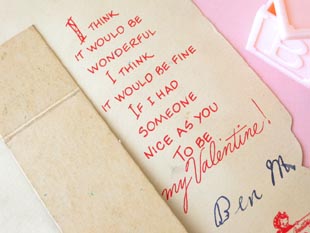 I THINK
IT WOULD BE
WONDERFUL
I THINK
IT WOULD BE FINE
IF I HAD
SOMEONE
NICE AS YOU
TO BE
my Valentine!
Ben